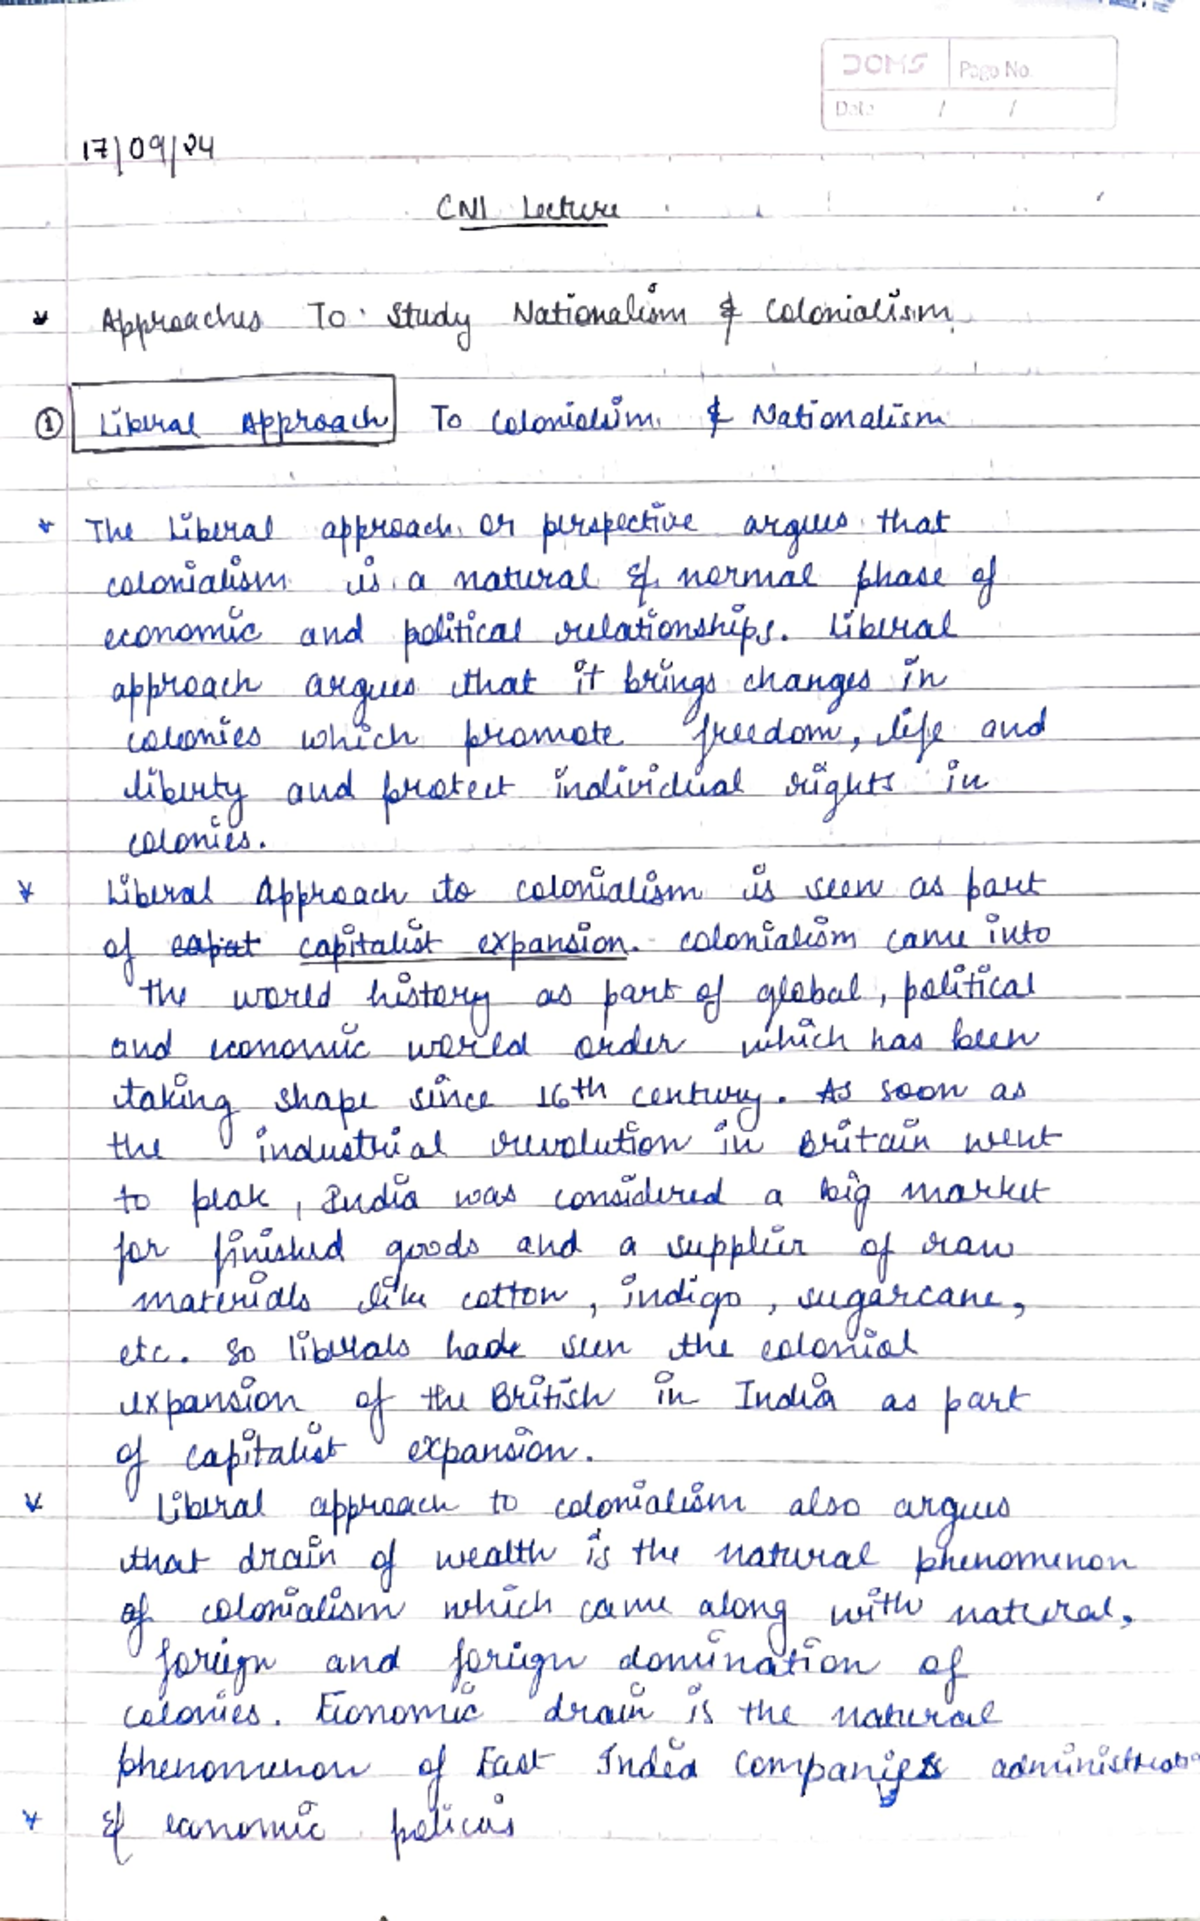 DOMS Page No.
Date / /
17/09/24
CNI Lecture
* Approaches To Study Nationalism & Colonialism
① Liberal Approach To Colonialism & Nationalism
* The Liberal approach or perspective argues that
colonialism is a natural & normal phase of
economic and political relationships. Liberal
approach argues that it brings changes in
colonies which promote freedom, life and
liberty and protect individual rights in
colonies.
* Liberal Approach to colonialism is seen as part
of capitalist expansion. colonialism came into
the world history as part of global, political
and economic world order which has been
taking shape since 16th century. As soon as
the industrial revolution in Britain went
to peak, India was considered a big market
for finished goods and a supplier of raw
materials like cotton, indigo, sugarcane,
etc. So liberals have seen the colonial
expansion of the British in India as part
of capitalist expansion.
* Liberal approach to colonialism also argues
that drain of wealth is the natural phenomenon
of colonialism which came along with natural,
foreign and foreign domination of
colonies. Economic drain is the natural
phenomenon of East India Companies administratio
* & economic policies